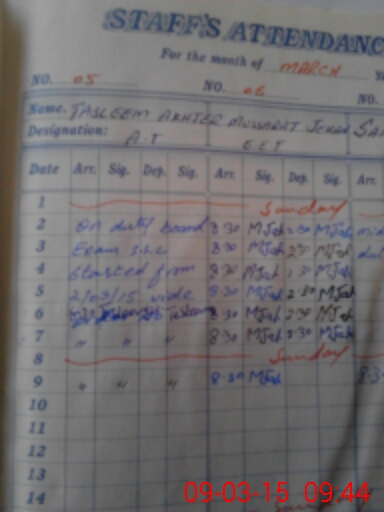 STAFF'S ATTENDANC
For the month of MARCH Y
NO. 05 NO. 06 NO.
Name. TASLEEM AKHTER MUSSARAT JEHAN SA
Designation: A.T E.E.T
Date Arr. Sig. Dep. Sig. Arr. Sig. Dep. Sig. Arr.
1 Sunday
2 On duty board 8:30 MJeh 2:30 MJeh
3 Exam S.S.C 8:30 MJeh 2:30 MJeh
4 started from 8:30 MJeh MJeh
5 2/03/15 wide 8:30 MJeh 2:30 MJeh
6 Tasleem Tasleem 8:30 MJeh 2:30 MJeh
7 " " " 8:30 MJeh 2:30 MJeh
8 Sunday
9 " " " 8:30 MJeh 8:3
10
11
12
13
14
09-03-15 09:44